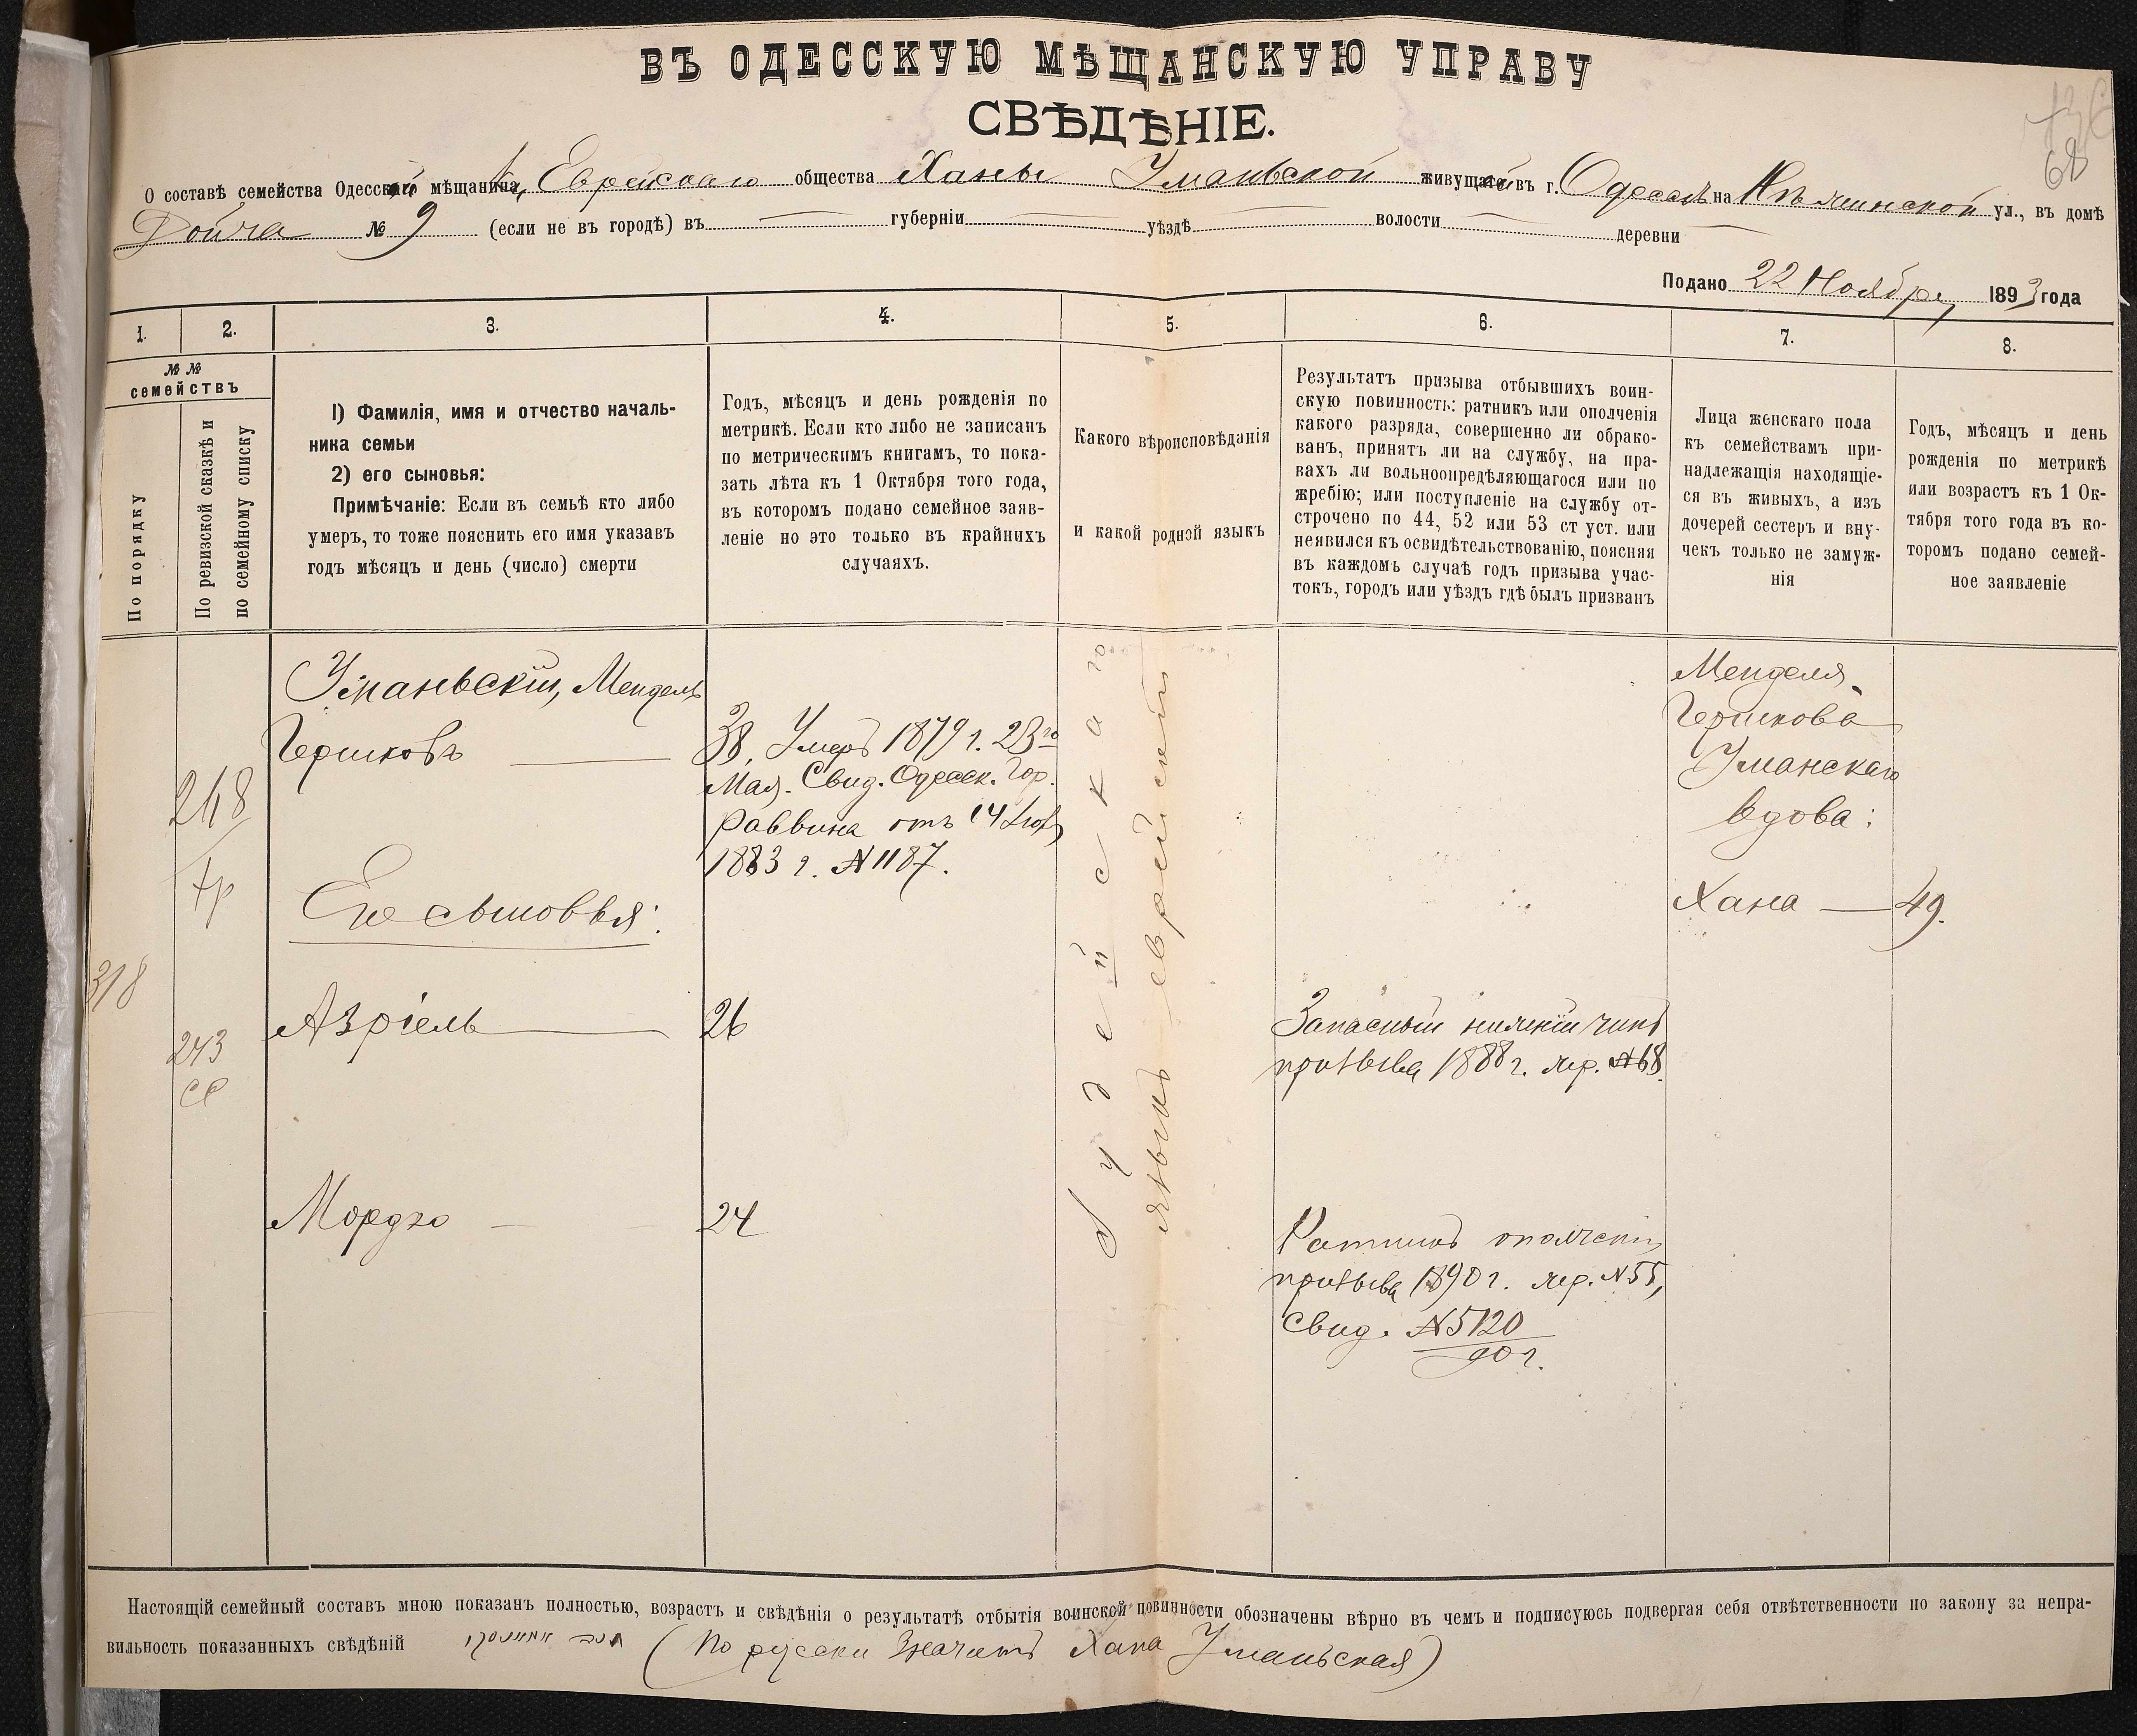 ВЪ ОДЕССКУЮ МѢЩАНСКУЮ УПРАВУ
СВѢДѢНІЕ.
68
О составѣ семейства Одесской мѣщанина Еврейскаго общества Ханы Уманьской живущей въ г. Одессѣ на ул., въ домѣ
Дойча № 9 (если не въ городѣ) въ губерніи уѣздѣ волости деревни
Подано 22 Ноября 1893 года
1. 2. 3. 4. 5. 6. 7. 8.
№ №
семействъ
По порядку
По ревизской сказкѣ и
по семейному списку
1) Фамилія, имя и отчество началь-
ника семьи
2) его сыновья:
Примѣчаніе: Если въ семьѣ кто либо
умеръ, то тоже пояснить его имя указавъ
годъ мѣсяцъ и день (число) смерти
Годъ, мѣсяцъ и день рожденія по
метрикѣ. Если кто либо не записанъ
по метрическимъ книгамъ, то пока-
зать лѣта къ 1 Октября того года,
въ которомъ подано семейное заяв-
леніе но это только въ крайнихъ
случаяхъ.
Какого вѣроисповѣданія
и какой родной языкъ
Результатъ призыва отбывшихъ воин-
скую повинность: ратникъ или ополченія
какого разряда, совершенно ли обрако-
ванъ, принятъ ли на службу, на пра-
вахъ ли вольноопредѣляющагося или по
жребію; или поступленіе на службу от-
строчено по 44, 52 или 53 ст уст. или
неявился къ освидѣтельствованію, поясняя
въ каждомъ случаѣ годъ призыва учас-
токъ, городъ или уѣздъ гдѣ былъ призванъ
Лица женскаго пола
къ семействамъ при-
надлежащія находящіе-
ся въ живыхъ, а изъ
дочерей сестеръ и вну-
чекъ только не замуж-
нія
Годъ, мѣсяцъ и день
рожденія по метрикѣ
или возрастъ къ 1 Ок-
тября того года въ ко-
торомъ подано семей-
ное заявленіе
Уманьскій, Мендель
Гершковъ
38. Умеръ 1879 г. 23го
Мая. Свид. Одесск. Гор.
Раввина отъ 14
1883 г. № 1187.
218
Его сыновья:
318
243
Азріель
26
Мордко
24
Іудейскаго
языкъ еврейскій
Запасный нижній чинъ
призыва 1888 г. жер. № 68.
Ратникъ ополченія
призыва 1890 г. жер. № 55,
Свид. № 5120
90 г.
Менделя
Гершкова
Уманскаго
вдова:
Хана 49.
Настоящій семейный составъ мною показанъ полностью, возрастъ и свѣдѣнія о результатѣ отбытія воинской повинности обозначены вѣрно въ чемъ и подписуюсь подвергая себя отвѣтственности по закону за непра-
вильность показанныхъ свѣдѣній (По русски значитъ Хана Уманьская)